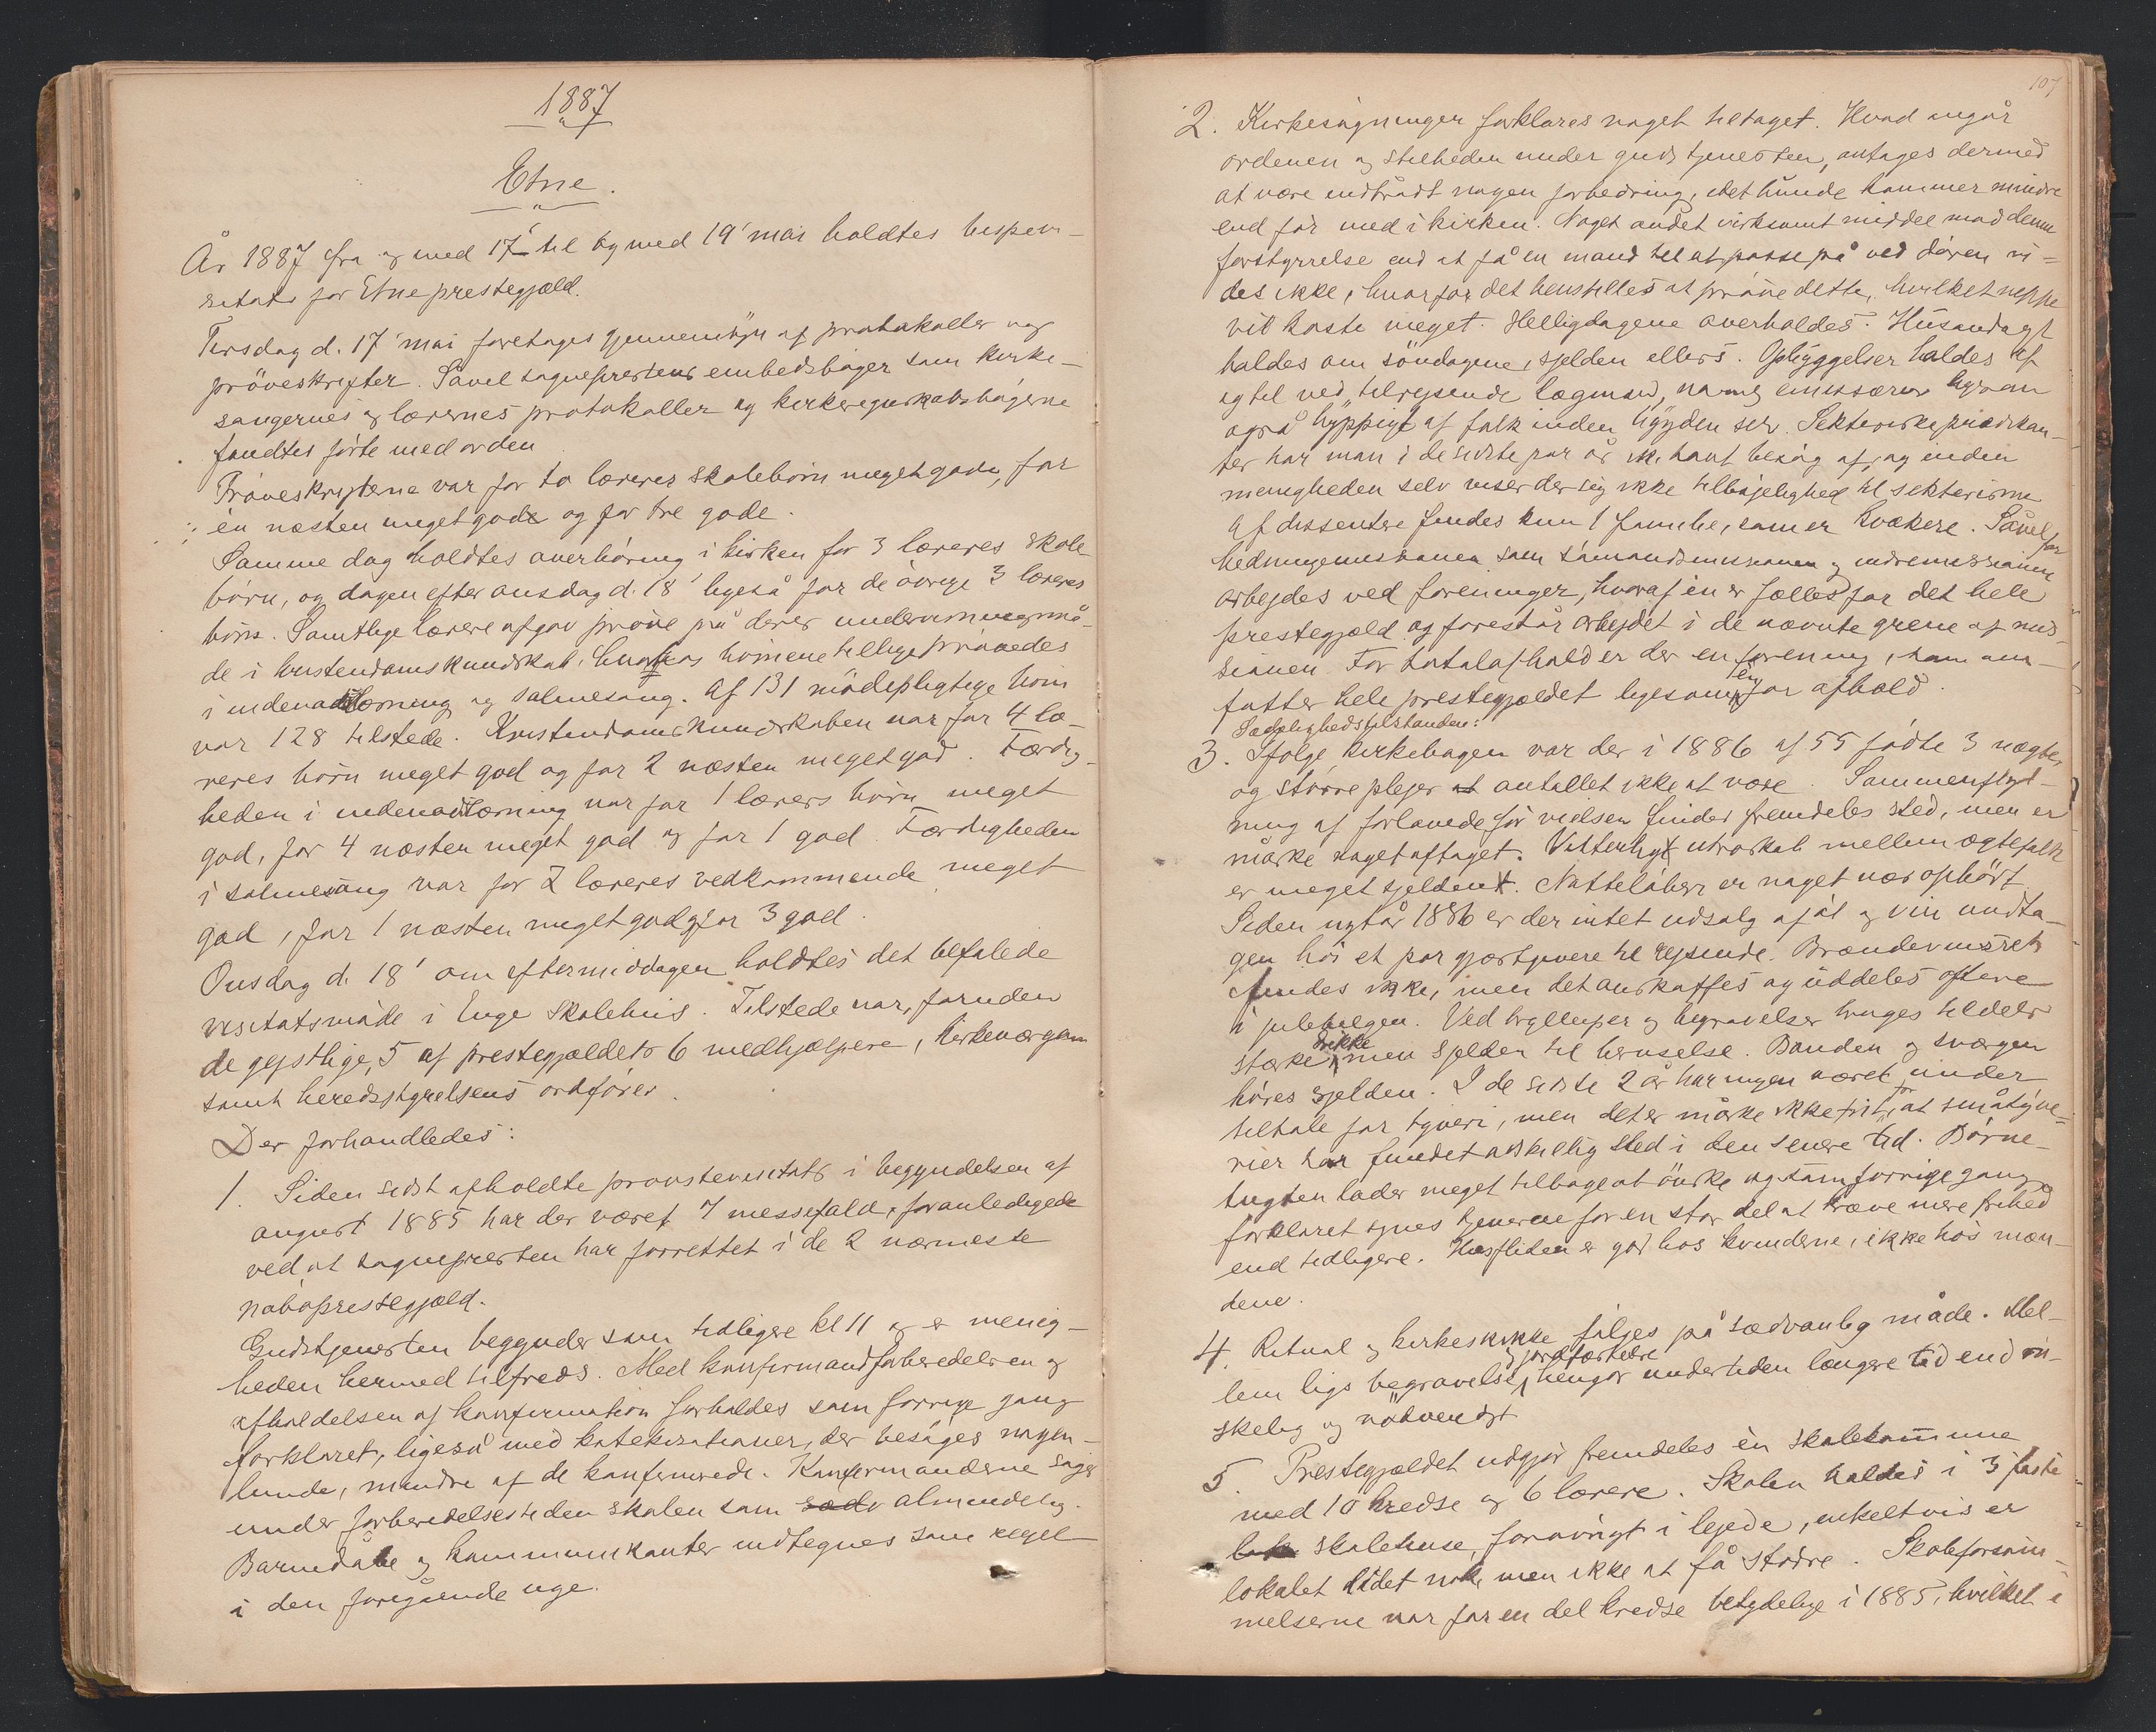 1887
Etne.
År 1887 fra og med 17' til og med 19' mai holdtes bispevi-
sitats for Etne prestegjæld.
Tirsdag d. 17' mai foretages gjennemsyn af protokoller og
pröveskrifter. Såvel sogneprestens embedsböger som kirke-
sangernes og lærernes protokoller og kirkeregnskabsbögerne
fandtes förte med orden
Pröveskrifterne var for to læreres skolebörn meget gode, for
én næsten meget gode og for tre gode.
Samme dag holdtes overhöring i kirken for 3 læreres skole-
börn, og dagen efter onsdag d. 18' ligeså for de övrige 3 læreres
börn. Samtlige lærere afgav pröve på deres undervisningsmå-
de i kristendomskundskab, hvorhos börnene tillige prövedes
i indenadslæsning og salmesang. Af 131 mödepligtige börn
var 128 tilstede. Kristendomskundskaben var for 4 læ-
reres börn meget god og for 2 næsten meget god. Færdig-
heden i indenadslæsning var for 1 lærers börn meget
god, for 4 næsten meget god og for 1 god. Færdigheden
i salmesang var for 2 læreres vedkommende meget
god, for 1 næsten meget god og for 3 god.
Onsdag d. 18' om eftermiddagen holdtes det befalede
visitatsmöde i Enge skolehus. Tilstede var, foruden
de gejstlige, 5 af prestegjældets 6 medhjælpere, kirkeværgerne
samt heredsstyrelsens ordförer.
Der forhandledes:
1. Siden sidst afholdte provstevisitats i begyndelsen af
august 1885 har der været 7 messefald, foranledigede
ved at sognepresten har forrettet i de 2 nærmeste
naboprestegjæld.
Gudstjenesten begynder som tidligere kl 11 og er menig-
heden hermed tilfreds. Med konfirmandforberedelsen og
afholdelsen af konfirmation forholdes som forrige gang
forklaret, ligeså med katekisationer, der besöges ingen-
lunde, mindre af de konfirmerede. Konfirmanderne söger
under forberedelsestiden skolen som sædv almindelig.
Barnedåbe og kommunikanter indtegnes som regel
i den foregående uge.
107
2. Kirkesögningen forklares noget tiltaget. Hvad angår
ordenen og stilheden under gudstjenesten, antages dermed
at være indtrådt nogen forbedring, idet hunde kommer mindre
end för med i kirken. Noget andet virksomt middel mod denne
forstyrrelse end at få en mand til at passe på ved dören vi-
des ikke, hvorfor det henstilles at pröve dette, hvilket neppe
vil koste meget. Helligdagene overholdes. Husandagt
holdes om söndagene, sjelden ellers. Opbyggelser holdes af
og til ved tilrejsende lægmænd,
også hyppigt af folk inden bygden selv. Sekteriske prædikan-
ter har man i de sidste par år ikke havt besög af, og inden
menigheden selv viser der sig ikke tilböjelighed til sekterisme.
Af dissentere findes kun 1 familie, som er kvækere. Såvel for
hedningemissionen som sömandsmissionen og indremissionen
arbejdes ved foreninger, hvoraf én er fælles for det hele
prestegjæld og forestår arbejdet i de nævnte grene af mis-
sionen. For totalafhold er der en forening, som om-
fatter hele prestegjældet ligesom én for afhold.
Sædelighedstilstanden:
3. Ifölge kirkebogen var der i 1886 af 55 födte 3 uægte,
og större plejer at antallet ikke at være. Sammenflyt-
ning af forlovede för vielsen finder fremdeles sted, men er
måske noget aftaget. Vitterligt utroskab mellem ægtefolk
er meget sjeldent. Natteløberi er noget nær ophört.
Siden nytår 1886 er der intet udsalg af öl og vin undta-
gen hos et par gjæstgivere til rejsende. Brændevinsret
findes ikke, men det anskaffes og uddeles oftere
i julehelgen. Ved bryllupper og begravelser bruges tildels
stærke drikke, men sjelden til beruselse. Banden og sværgen
höres sjelden. I de sidste 2 år har ingen været under
tiltale for tyveri, men det er måske ikke frit for, at småtyve-
rier har fundet adskillig sted i den senere tid. Börne-
tugten lader meget tilbage at önske og som forrige gang
forklaret synes tjenerne for en stor del at kræve mere frihed
end tidligere. Husfliden er god hos kvinderne, ikke hos mæn-
dene.
4. Ritual og kirkeskikke fölges på sædvanlig måde. Mel-
lem ligs begravelse og jordfæstelse hengår undertiden længere tid end ön-
skelig og nödvendigt
5. Prestegjældet udgjör fremdeles én skolekommune
med 10 kredse og 6 lærere. Skolen holdes i 3 faste
lok skolehuse, forövrigt i lejede, enkeltvis er
lokalet lidet nok, men ikke at få större. Skoleforsöm-
melserne var for en del kredse betydelige i 1885, hvilket i